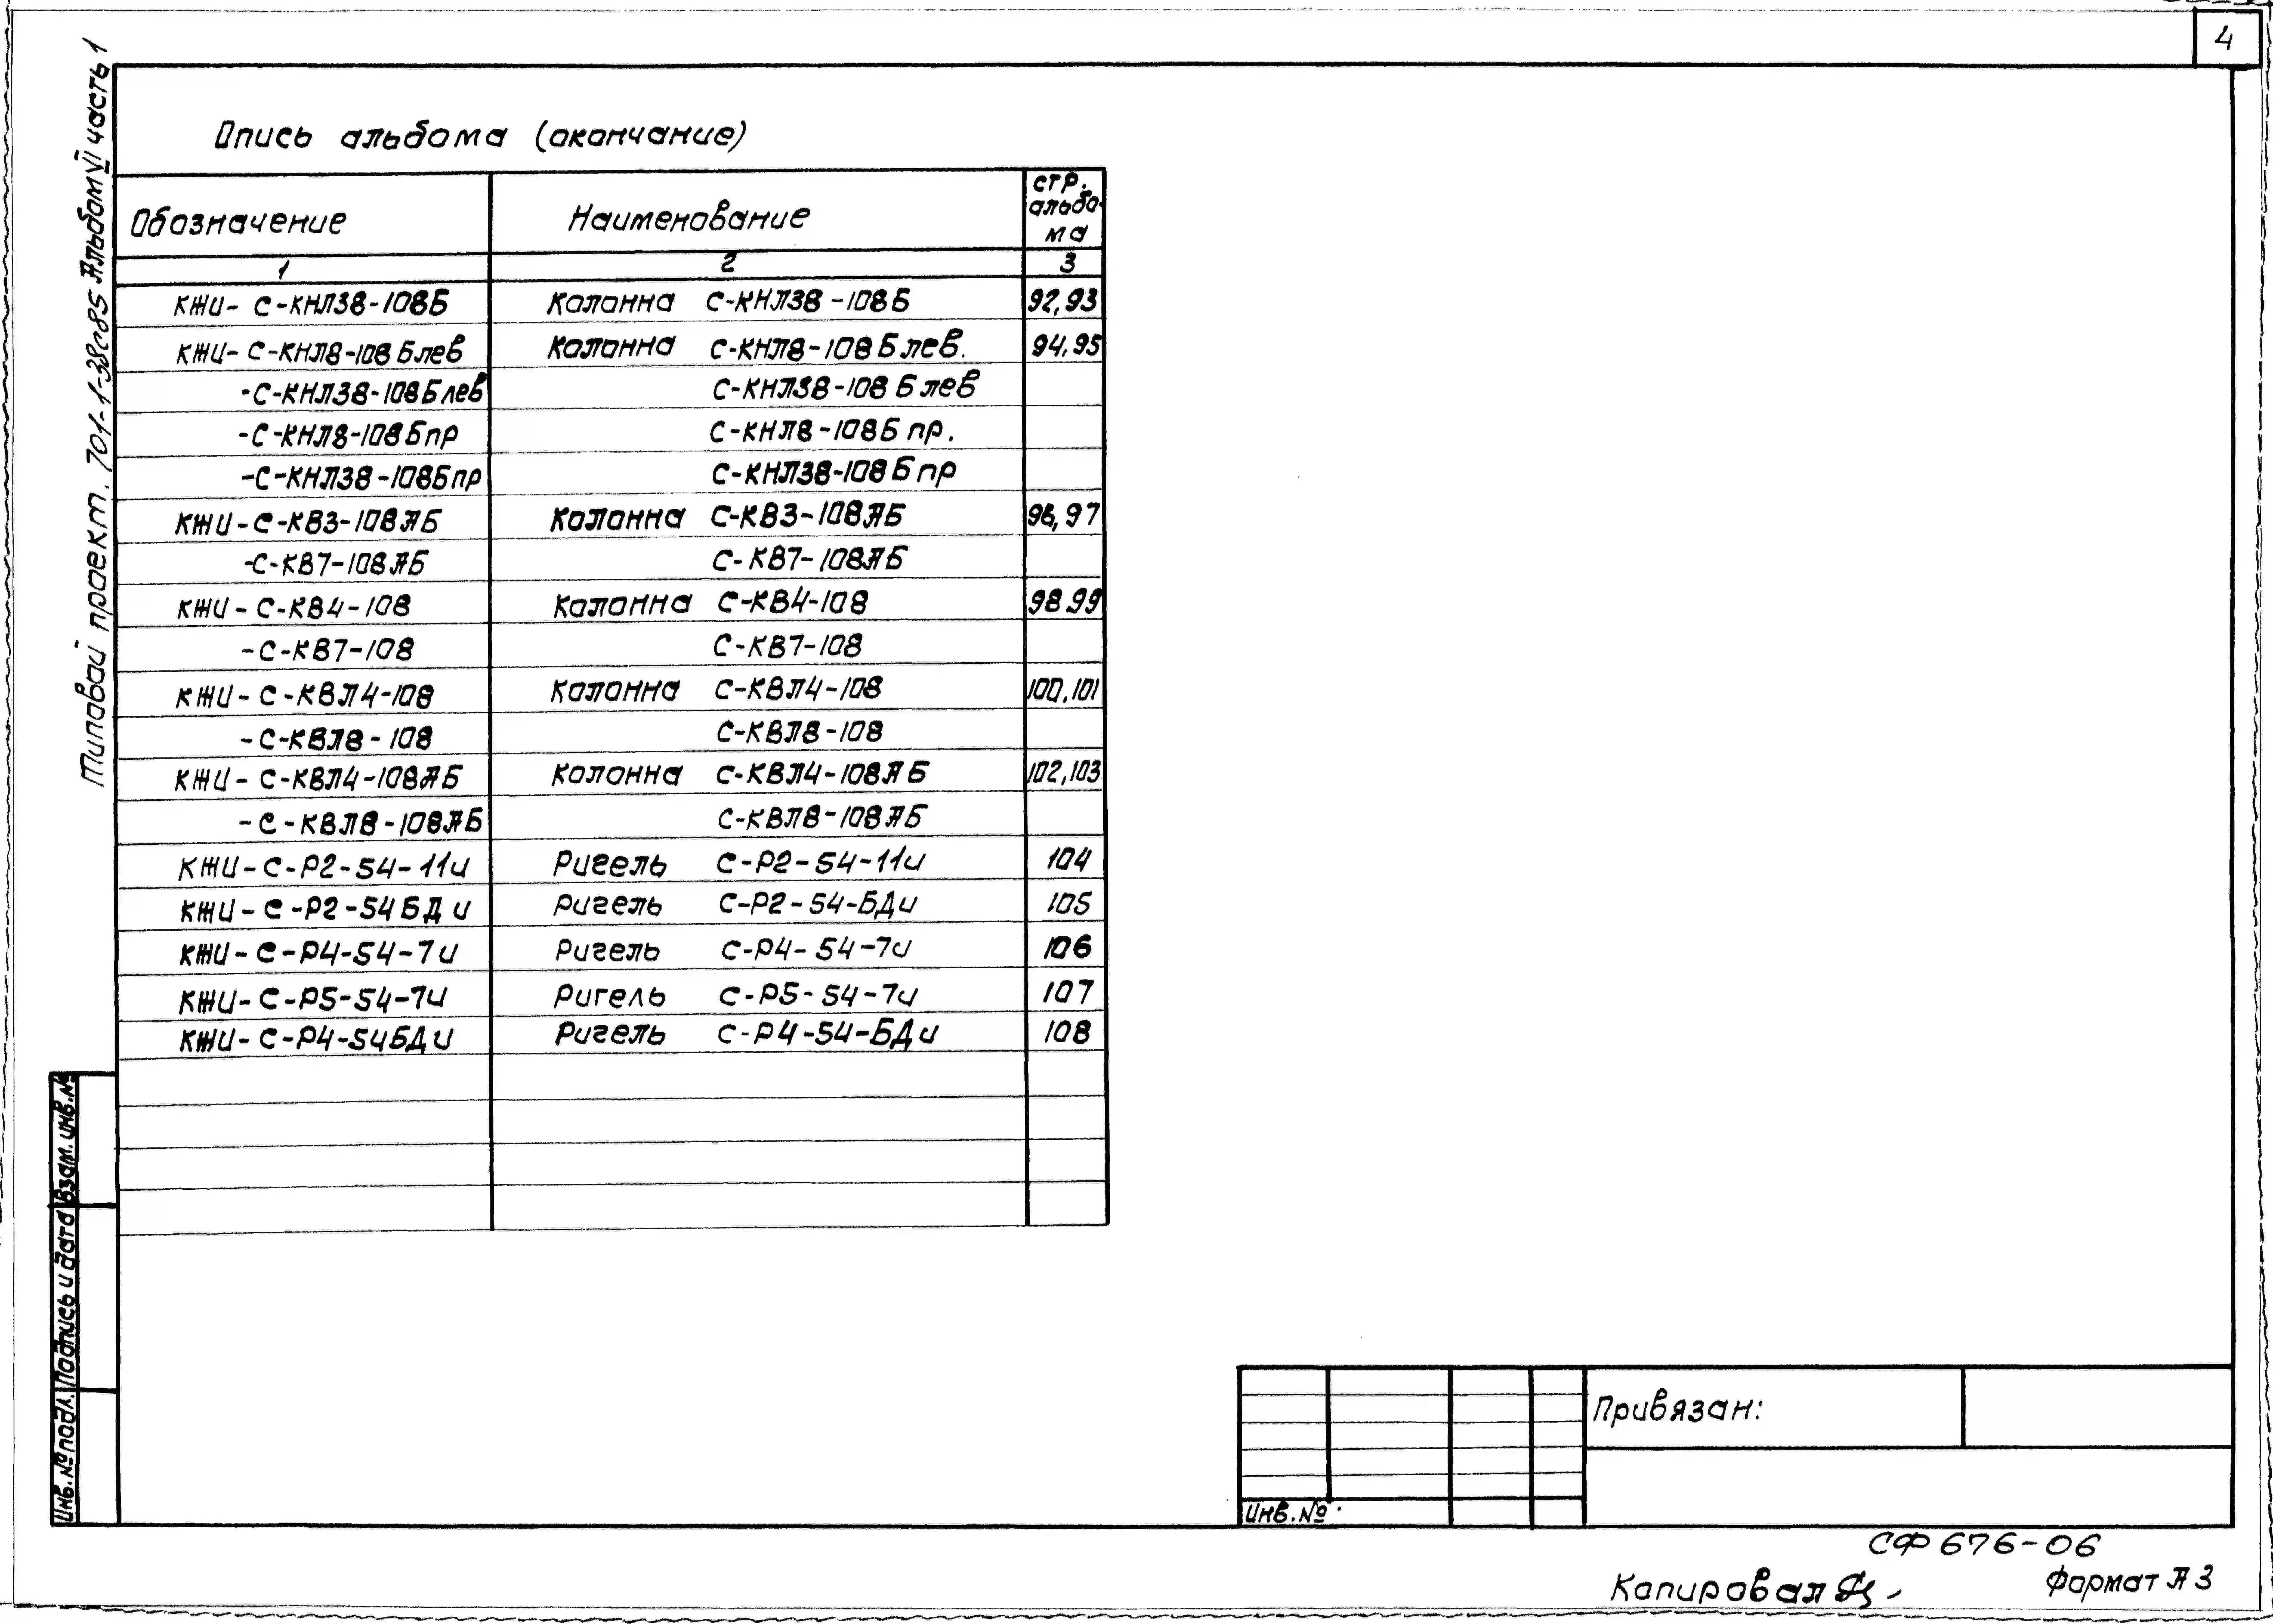 4
Типовой проект. 701-1-38с85 Альбом VI часть 1
Опись альбома (окончание)
Обозначение Наименование стр. альбо-ма
1 2 3
КЖИ- С-КНЛ38-108Б Колонна С-КНЛ38-108Б 92,93
КЖИ- С-КНЛ8-108Блев Колонна С-КНЛ8-108Блев. 94,95
-С-КНЛ38-108Блев С-КНЛ38-108Блев
-С-КНЛ8-108Бпр С-КНЛ8-108Бпр.
-С-КНЛ38-108Бпр С-КНЛ38-108Бпр
КЖИ-С-КВ3-108АБ Колонна С-КВ3-108АБ 96,97
-С-КВ7-108АБ С-КВ7-108АБ
КЖИ-С-КВ4-108 Колонна С-КВ4-108 98.99
-С-КВ7-108 С-КВ7-108
КЖИ-С-КВЛ4-108 Колонна С-КВЛ4-108 100,101
-С-КВЛ8-108 С-КВЛ8-108
КЖИ-С-КВЛ4-108АБ Колонна С-КВЛ4-108АБ 102,103
-С-КВЛ8-108АБ С-КВЛ8-108АБ
КЖИ-С-Р2-54-11и Ригель С-Р2-54-11и 104
КЖИ-С-Р2-54БДи Ригель С-Р2-54-БДи 105
КЖИ-С-Р4-54-7и Ригель С-Р4-54-7и 106
КЖИ-С-Р5-54-7и Ригель С-Р5-54-7и 107
КЖИ-С-Р4-54БДи Ригель С-Р4-54-БДи 108
Взам. инв.№
Подпись и дата
Инв.№ подл.
Привязан:
Инв.№
СФ 676-06
Копировал
Формат А3